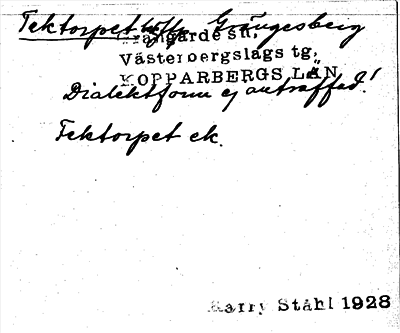 Tektorpet Grängesberg
Grangärde sn,
Västerbergslags tg,
KOPPARBERGS LÄN
Dialektform ej anträffad!
Tektorpet ek.
Harry Ståhl 1928